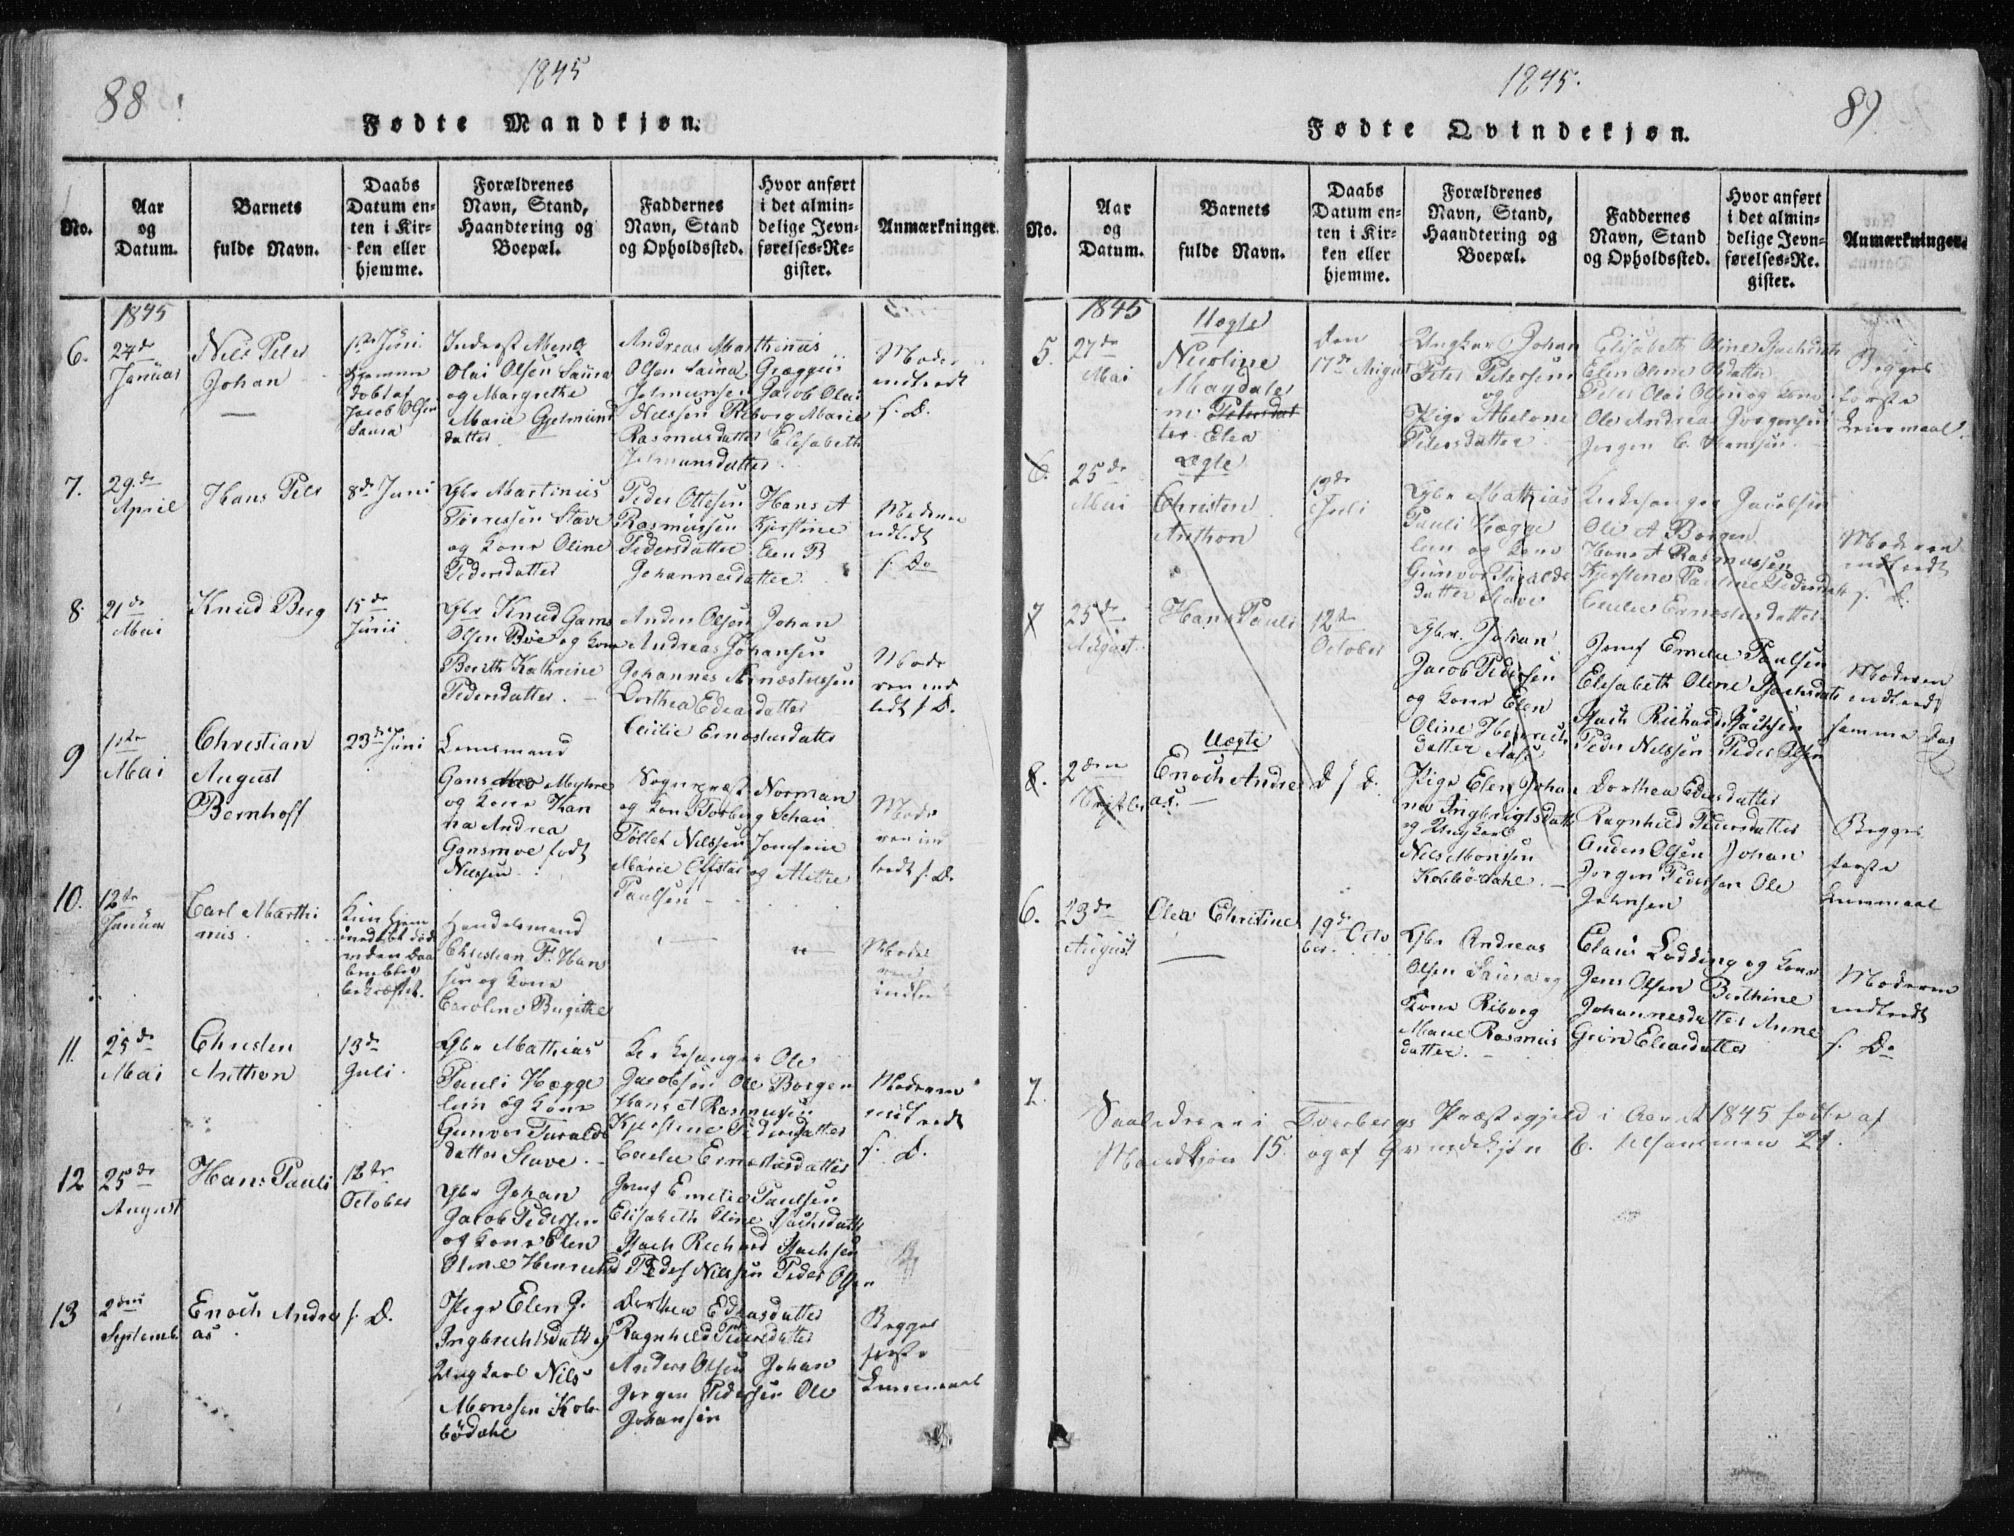 88
1845
Fødte Mandkjøn.
No.
Aar
og
Datum.
Barnets
fulde Navn.
Daabs
Datum en-
ten i Kir-
ken eller
hjemme.
Forældrenes
Navn, Stand,
Haandtering og
Boepæl.
Faddernes
Navn, Stand
og Opholdssted.
Hvor anført
i det almin-
delige Jevn-
førelses-Re-
gister.
Anmærkninger.
1845
6.
24de
Januar
Nils Peter
Johan
1ste Juni
hjemme
døbt af
Jacob Olsen
Saura
Inderst
Olai Olsen Saura
og Margrethe
Marie Gjelmund
datter
Andreas Marthinus
Olsen Saura
Jacob Olai
Nilssen Riborg Marie
Rasmusdatter Elisabeth
Jelmunsdatter
Moder
indledt
s. D.
7.
29de
April
Hans Peter
8de Juni
Gbr Martinus
Stave
og Kone Oline
Pedersdatter
Peder Ottesen Hans A
Rasmussen Kjerstine
Pedersdatter Elen B
Johannesdatter
Moderen
indledt
s. Do
8.
21de
Mai
Knud Berg
15de
Juni
Gbr Knud Gams
Olsen Bøe og Kone
Berith Kathrine
Pedersdatter.
Anders Olsen Johan
Andreas Johansen
Johannes Ernestussen
Dorthea Edeasdatter
Cecilie Ernestusdatter
Mode
ren ind
ledt s. D.
9
1ste
Mai
Christian
August
Bernhoff
23de Juni
Lensmand
Gans Moe Myhre
og Kone Han
na Andrea
Gansmoe født
Nilssen
Sognepræst Norman
og Kone Torberg Schau
Tollet Nilssen Jomfrue
Marie Olstad og Mette
Paulsen
Mode
ren ind
ledt s. D.
10.
12te
Januar
Carl Marthi
nus.
Kun hjem
medøbt død
inden Daa
ben blev
bekræftet.
Handelsmand
Christian F. Han
sen og Kone
Caroline Birgithe
"
Mode
ren
indle
11.
25de
Mai
Christen
Anthon
13de
Juli.
Gbr Mathias
Pauli Hægge
lun og Kone
Gunvor Taralds
datter Stave.
Kirkesanger Ole
Jacobsen Ole Borgen
Hans A Rasmussen
Kjerstine Pedersdatter
Cecilie Ernestusdatter
Moderen
indledt
s. D.
12
25de
August
Hans Pauli
12te
October
Gbr Johan
Jacob Pedersen
og Kone Elen
Oline Henrichs
Jomf Emelie Paulsen
Elisabeth Oline Isachsdatter
Isach Richard Isachsen
Peder Nilssen Peder Olsen
13
2den
Septemb.
Enoch Andre
as.
s. D.
Pige Elen J.
Ingbrechtsdatter og
Ungkarl Nils
Monssen Kob-
bødahl
Dorthea Edeasdatter
Ragnhild Pedersdatter
Anders Olsen Johan
Jørgen Pedersen Ole
Johansen
Begges
første
Leiermaal
1845.
89
Fødte Qvindekjøn.
No.
Aar
og
Datum.
Barnets
fulde Navn.
Daabs
Datum en-
ten i Kir-
ken eller
hjemme.
Forældrenes
Navn, Stand,
Haandtering og
Boepæl.
Faddernes
Navn, Stand
og Opholdssted.
Hvor anført
i det almin-
delige Jevn-
førelses-Re-
gister.
Anmærkninger.
1845
5.
27de
Mai
Uægte
Nicoline
Magdale
ne Petersdat
ter Elea
den
17de August
Ungkar Johan
Peter Petersen
og
Pige Abelone
Petersdatter
Elisabeth Oline Isachsdatter
Elen Oline Olsdatter
Peter Olai Olsen og Kone
Ole Andreas Jørgensen
Jørgen C. Hanssen
Begges
første
Leiermaal.
6.
25de
Mai
Ægte
Christen
Anthon
13de
Juli
Gbr Mathias
Pauli Hægge
lun og Kone
Gunvor Taralds
datter Stave
Kirkesanger Jacobsen
Ole A Borgen
Hans A Rasmussen
Kjerstine Pauline Pedersdatter
Cecilie Ernestusdatter
Moderen
indledt
s. D.
7
25de
August
Hans Pauli
12te
October
Gbr. Johan
Jacob Pedersen
og Kone Elen
Oline Henrichs
datter Aase
Jomf Emelie Paulsen
Elisabeth Oline Isachsdatter
Isach Richard Isachsen
Peder Nilssen Peder Olsen
Moderen
indledt
samme Dag
8.
2den
Septbr
Uægte
Enoch Andre
as.
D. s. D.
Pige Elen Johan
na Ingbrigtsdatter
og Ungkarl
Nils Monssen
Kobbødahl.
Dorthea Edeasdatter
Ragnhild Pedersdatter
Anders Olsen Johan
Jørgen Pedersen Ole
Johnsen
Begges
første
Leiermaal
6.
23de
August
Olea Christine
19de Octo
ber.
Gbr Andreas
Olsen Saura og
Kone Riborg
Marie Rasmus
datter.
Claus Lodding og Kone
Jens Olsen Berthine
Johannesdatter Anne
Guro Eliasdatter
Moderen
indledt
s. Do
7.
Saaledes er i Dverbergs Præstegjeld i Aaret 1845 fødte af
Mandkjøn 15. og af Qvindekjøn 6. tilsammen 21.